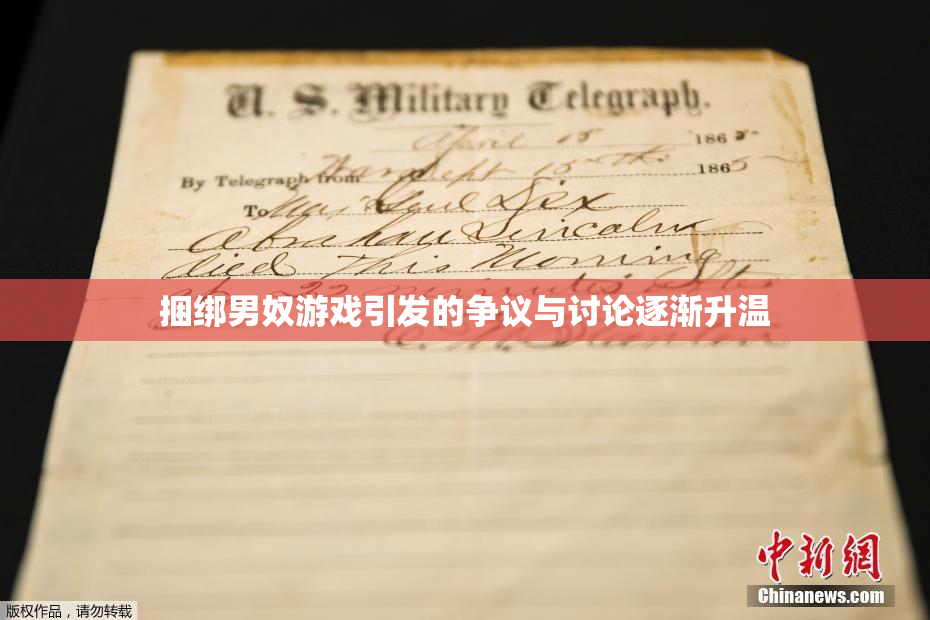 U. S. Military Telegraph.
April 15 1865
By Telegraph from War Dept 15th 1865
To Maj Genl Dix
Abraham Lincoln
died This Morning
at 22 minutes after
捆绑男奴游戏引发的争议与讨论逐渐升温
E. M. Stanton
中新网
Chinanews.com
版权作品，请勿转载